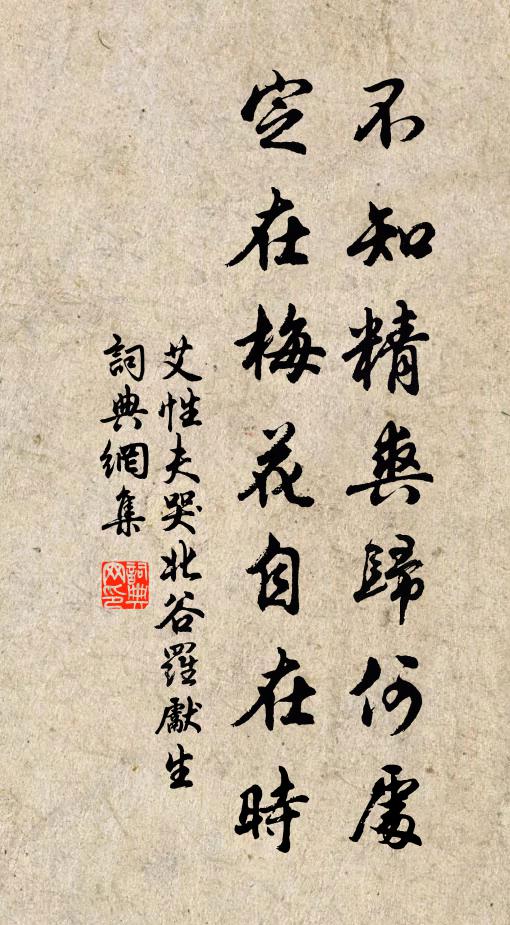 不知精爽歸何處
定在梅花自在時
艾性夫哭北谷羅獻生
詞典網集
詞典
网印